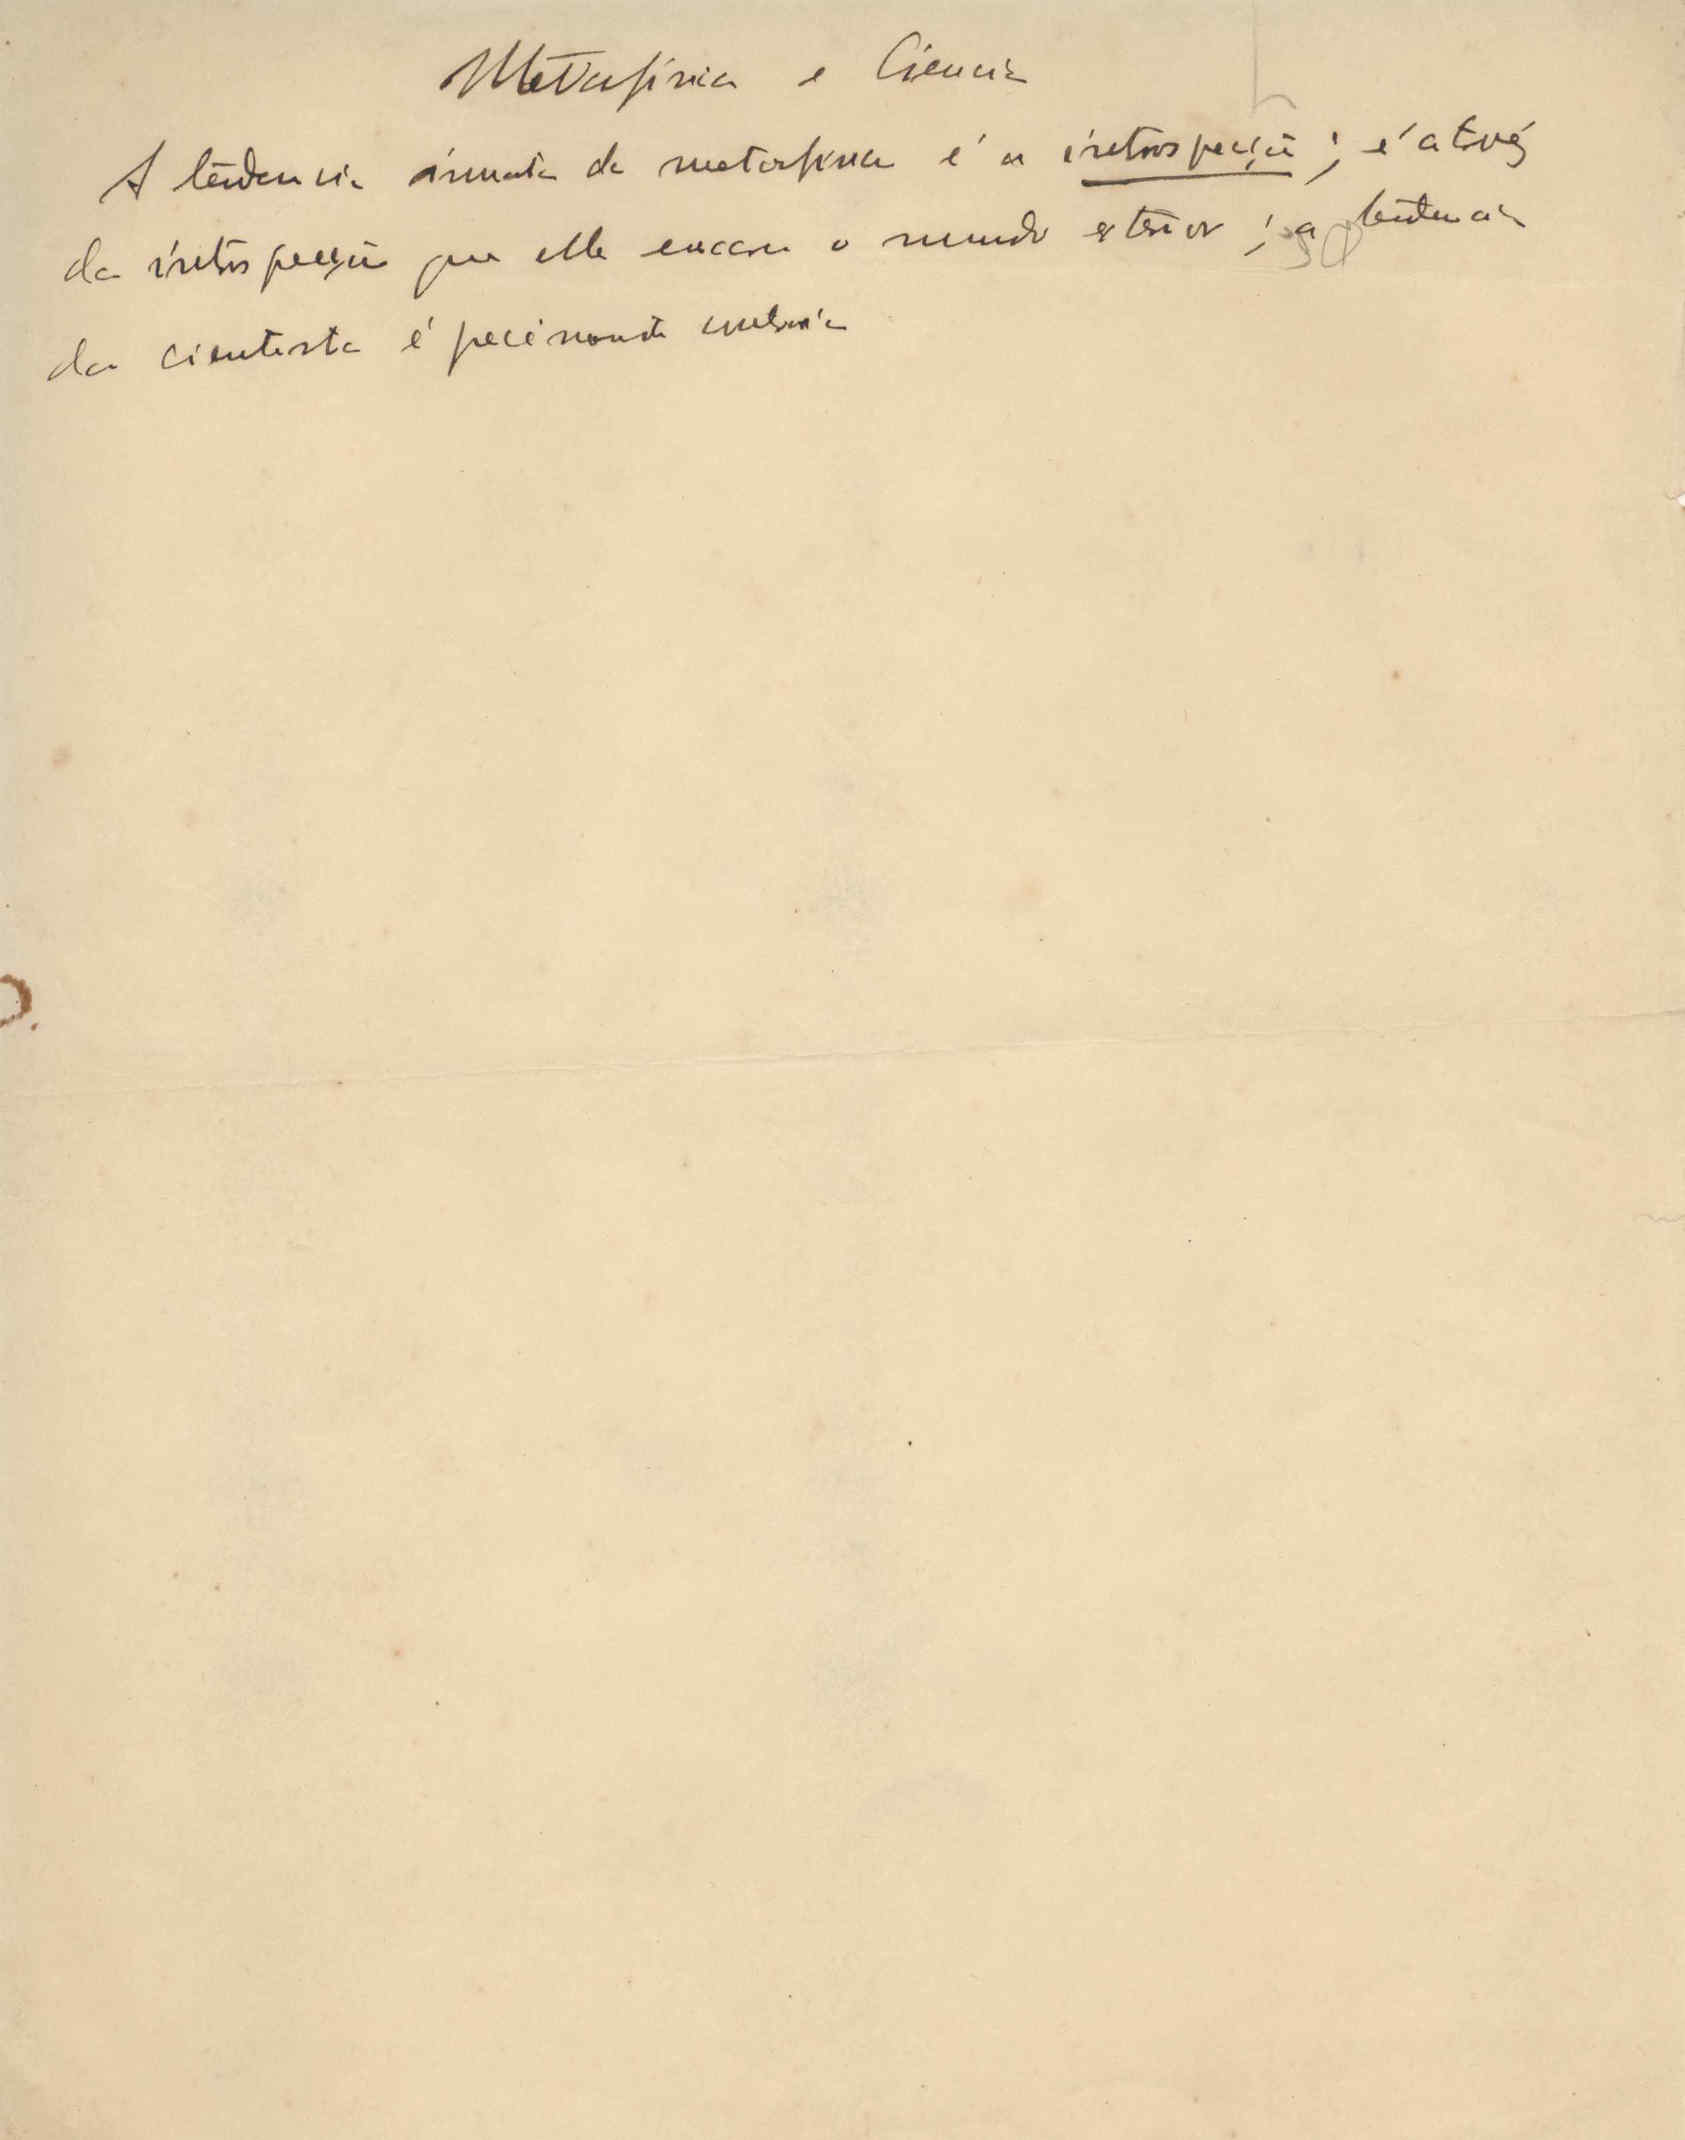 Metafísica e Ciencia
A tendencia innata da metafisica é a introspecção; é atravéz
da introspecção que ella encara o mundo exterior; a tendencia
da cientista é precisamente contraria